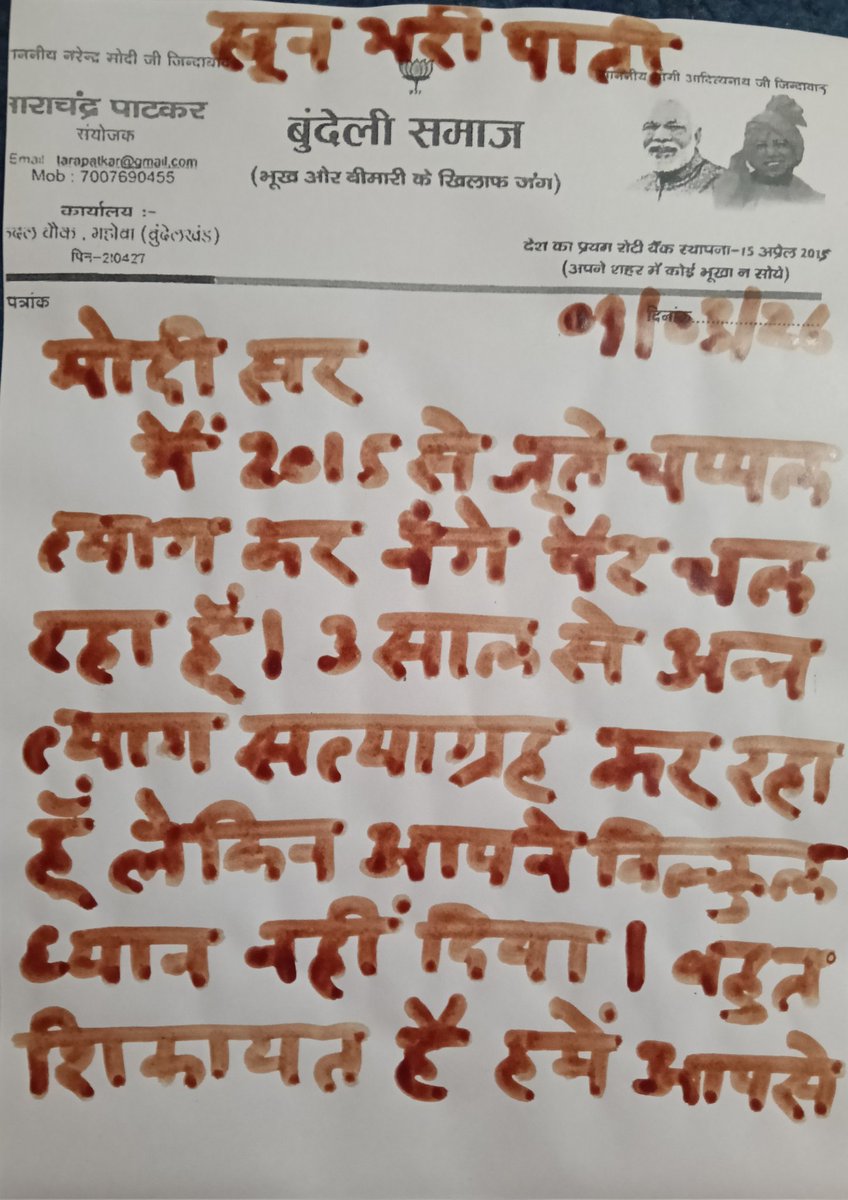 खून भरी पाती
माननीय नरेन्द्र मोदी जी जिन्दाबाद
माननीय योगी आदित्यनाथ जी जिन्दावाद
ताराचंद्र पाटकर
संयोजक
Email tarapatkar@gmail.com
Mob : 7007690455
बुंदेली समाज
(भूख और बीमारी के खिलाफ जंग)
कार्यालय :-
चौक, महोवा (बुंदेलखंड)
पिन-210427
देश का प्रथम रोटी बैंक स्थापना-15 अप्रेल 2015
(अपने शहर में कोई भूखा न सोये)
पत्रांक
दिनांक
मोदी सर
मैं 2015 से जूते चप्पल
त्याग कर नंगे पैर चल
रहा हूँ। 3 साल से अन्न
त्याग सत्याग्रह कर रहा
हूँ लेकिन आपने बिल्कुल
ध्यान नहीं दिया। बहुत
शिकायत है हमें आपसे